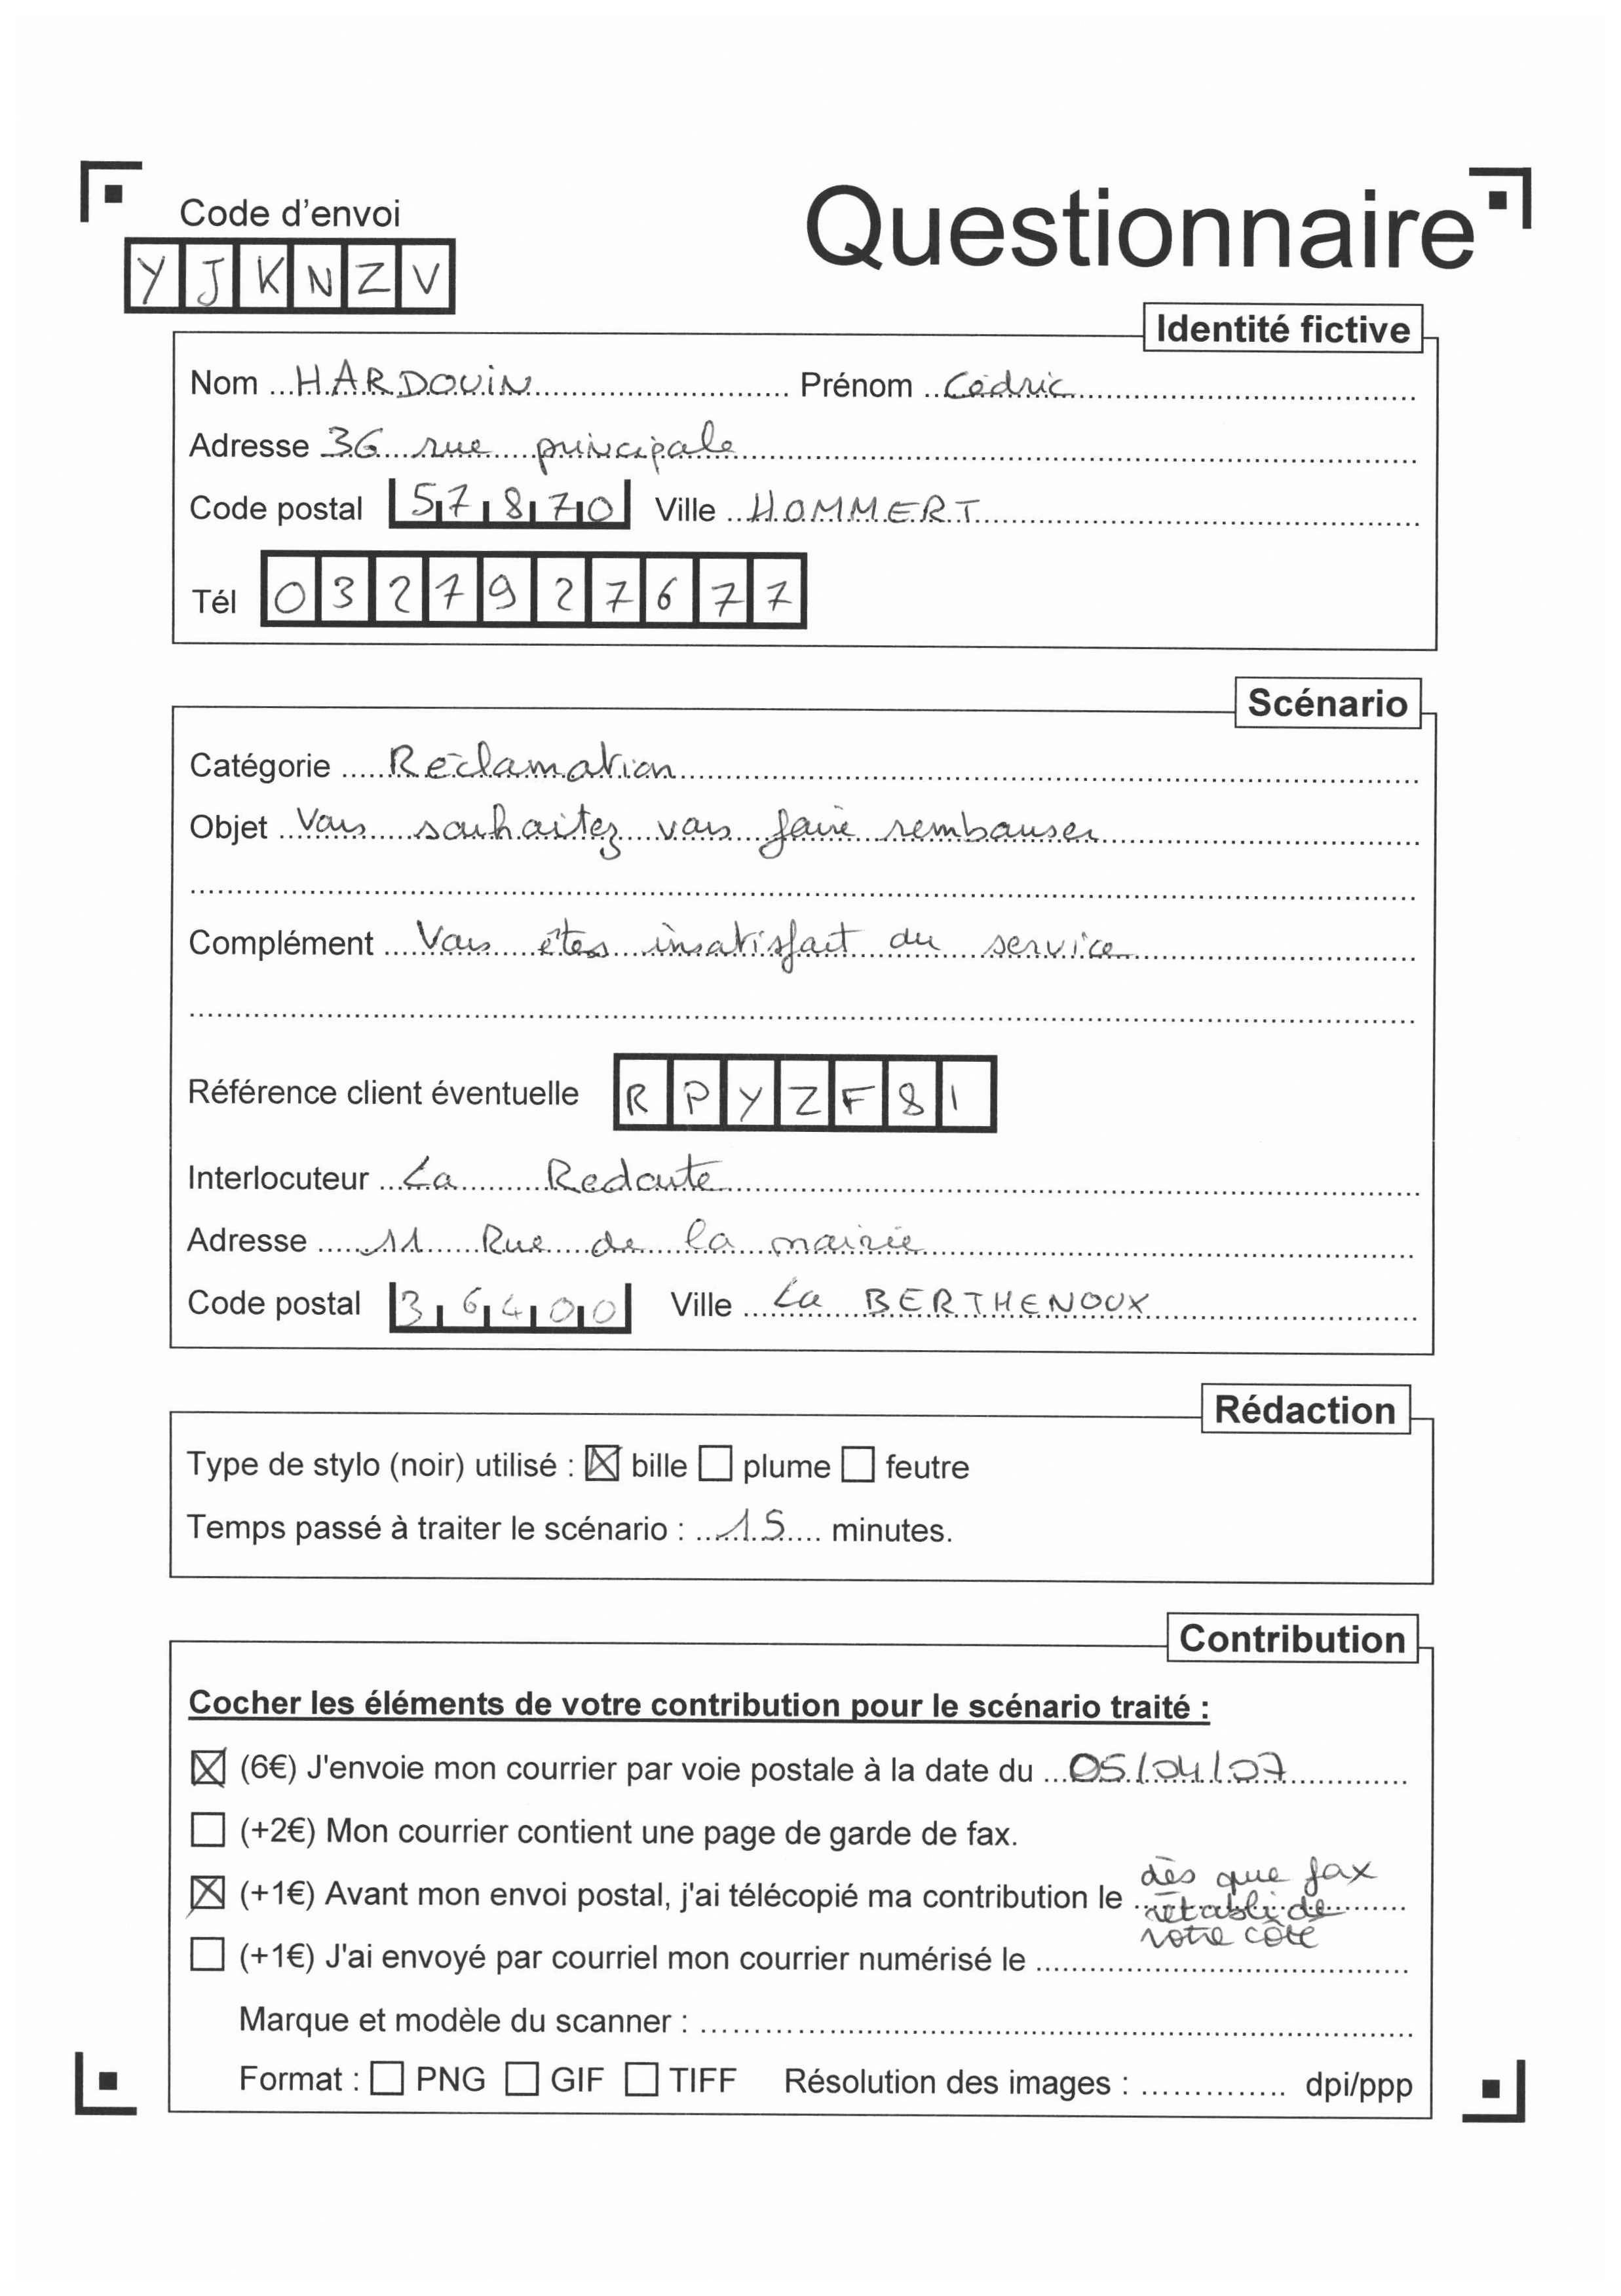 Code d'envoi
Questionnaire
Y J K N Z V
Identité fictive
Nom HARDOUIN Prénom Cédric
Adresse 36 rue principale
Code postal 57870 Ville HOMMERT
Tél 0327927677
Scénario
Catégorie Réclamation
Objet Vous souhaitez vous faire rembourser
Complément Vous êtes insatisfait du service
Référence client éventuelle RPYZF81
Interlocuteur La Redoute
Adresse 11 Rue de la mairie
Code postal 36400 Ville La BERTHENOUX
Rédaction
Type de stylo (noir) utilisé : ☒ bille ☐ plume ☐ feutre
Temps passé à traiter le scénario : 15 minutes.
Contribution
Cocher les éléments de votre contribution pour le scénario traité :
☒ (6€) J'envoie mon courrier par voie postale à la date du 05/04/07
☐ (+2€) Mon courrier contient une page de garde de fax.
☒ (+1€) Avant mon envoi postal, j'ai télécopié ma contribution le dès que fax
rétabli de
votre côté
☐ (+1€) J'ai envoyé par courriel mon courrier numérisé le
Marque et modèle du scanner :
Format : ☐ PNG ☐ GIF ☐ TIFF Résolution des images : dpi/ppp